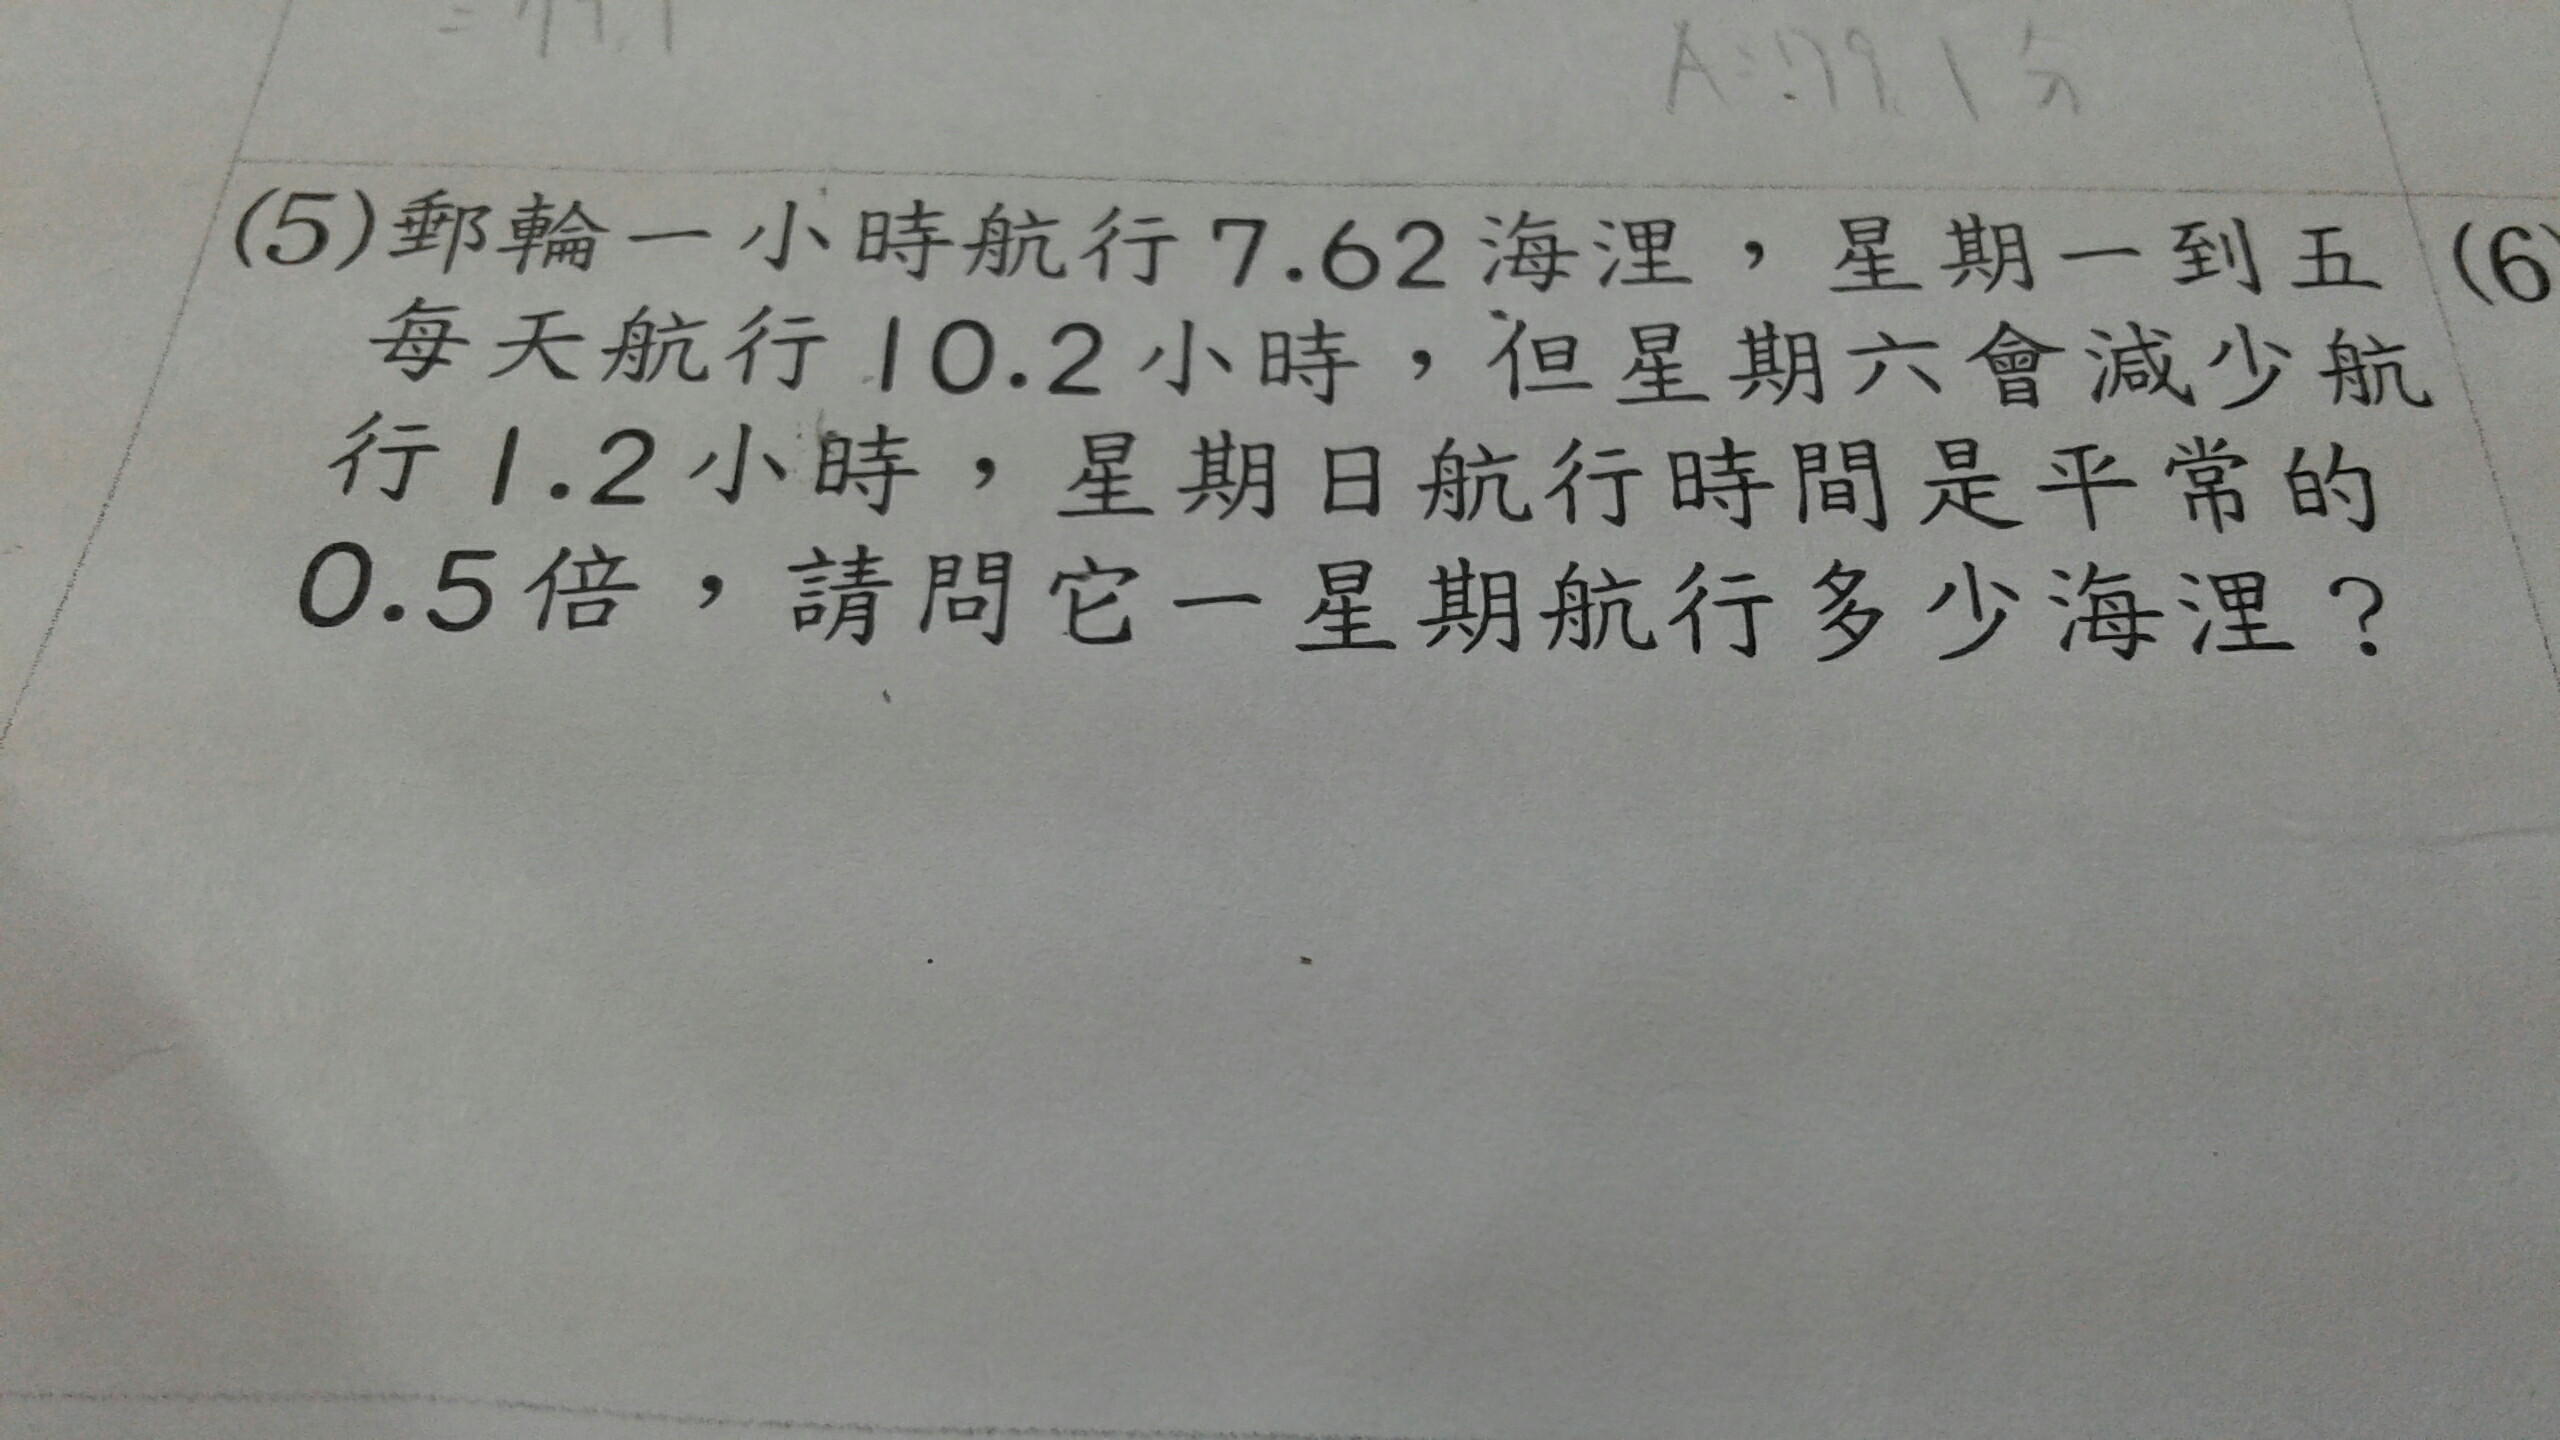 = 79.1
A: 79.1分
(5)郵輪一小時航行7.62海浬，星期一到五 (6)
每天航行10.2小時，但星期六會減少航
行1.2小時，星期日航行時間是平常的
0.5倍，請問它一星期航行多少海浬？